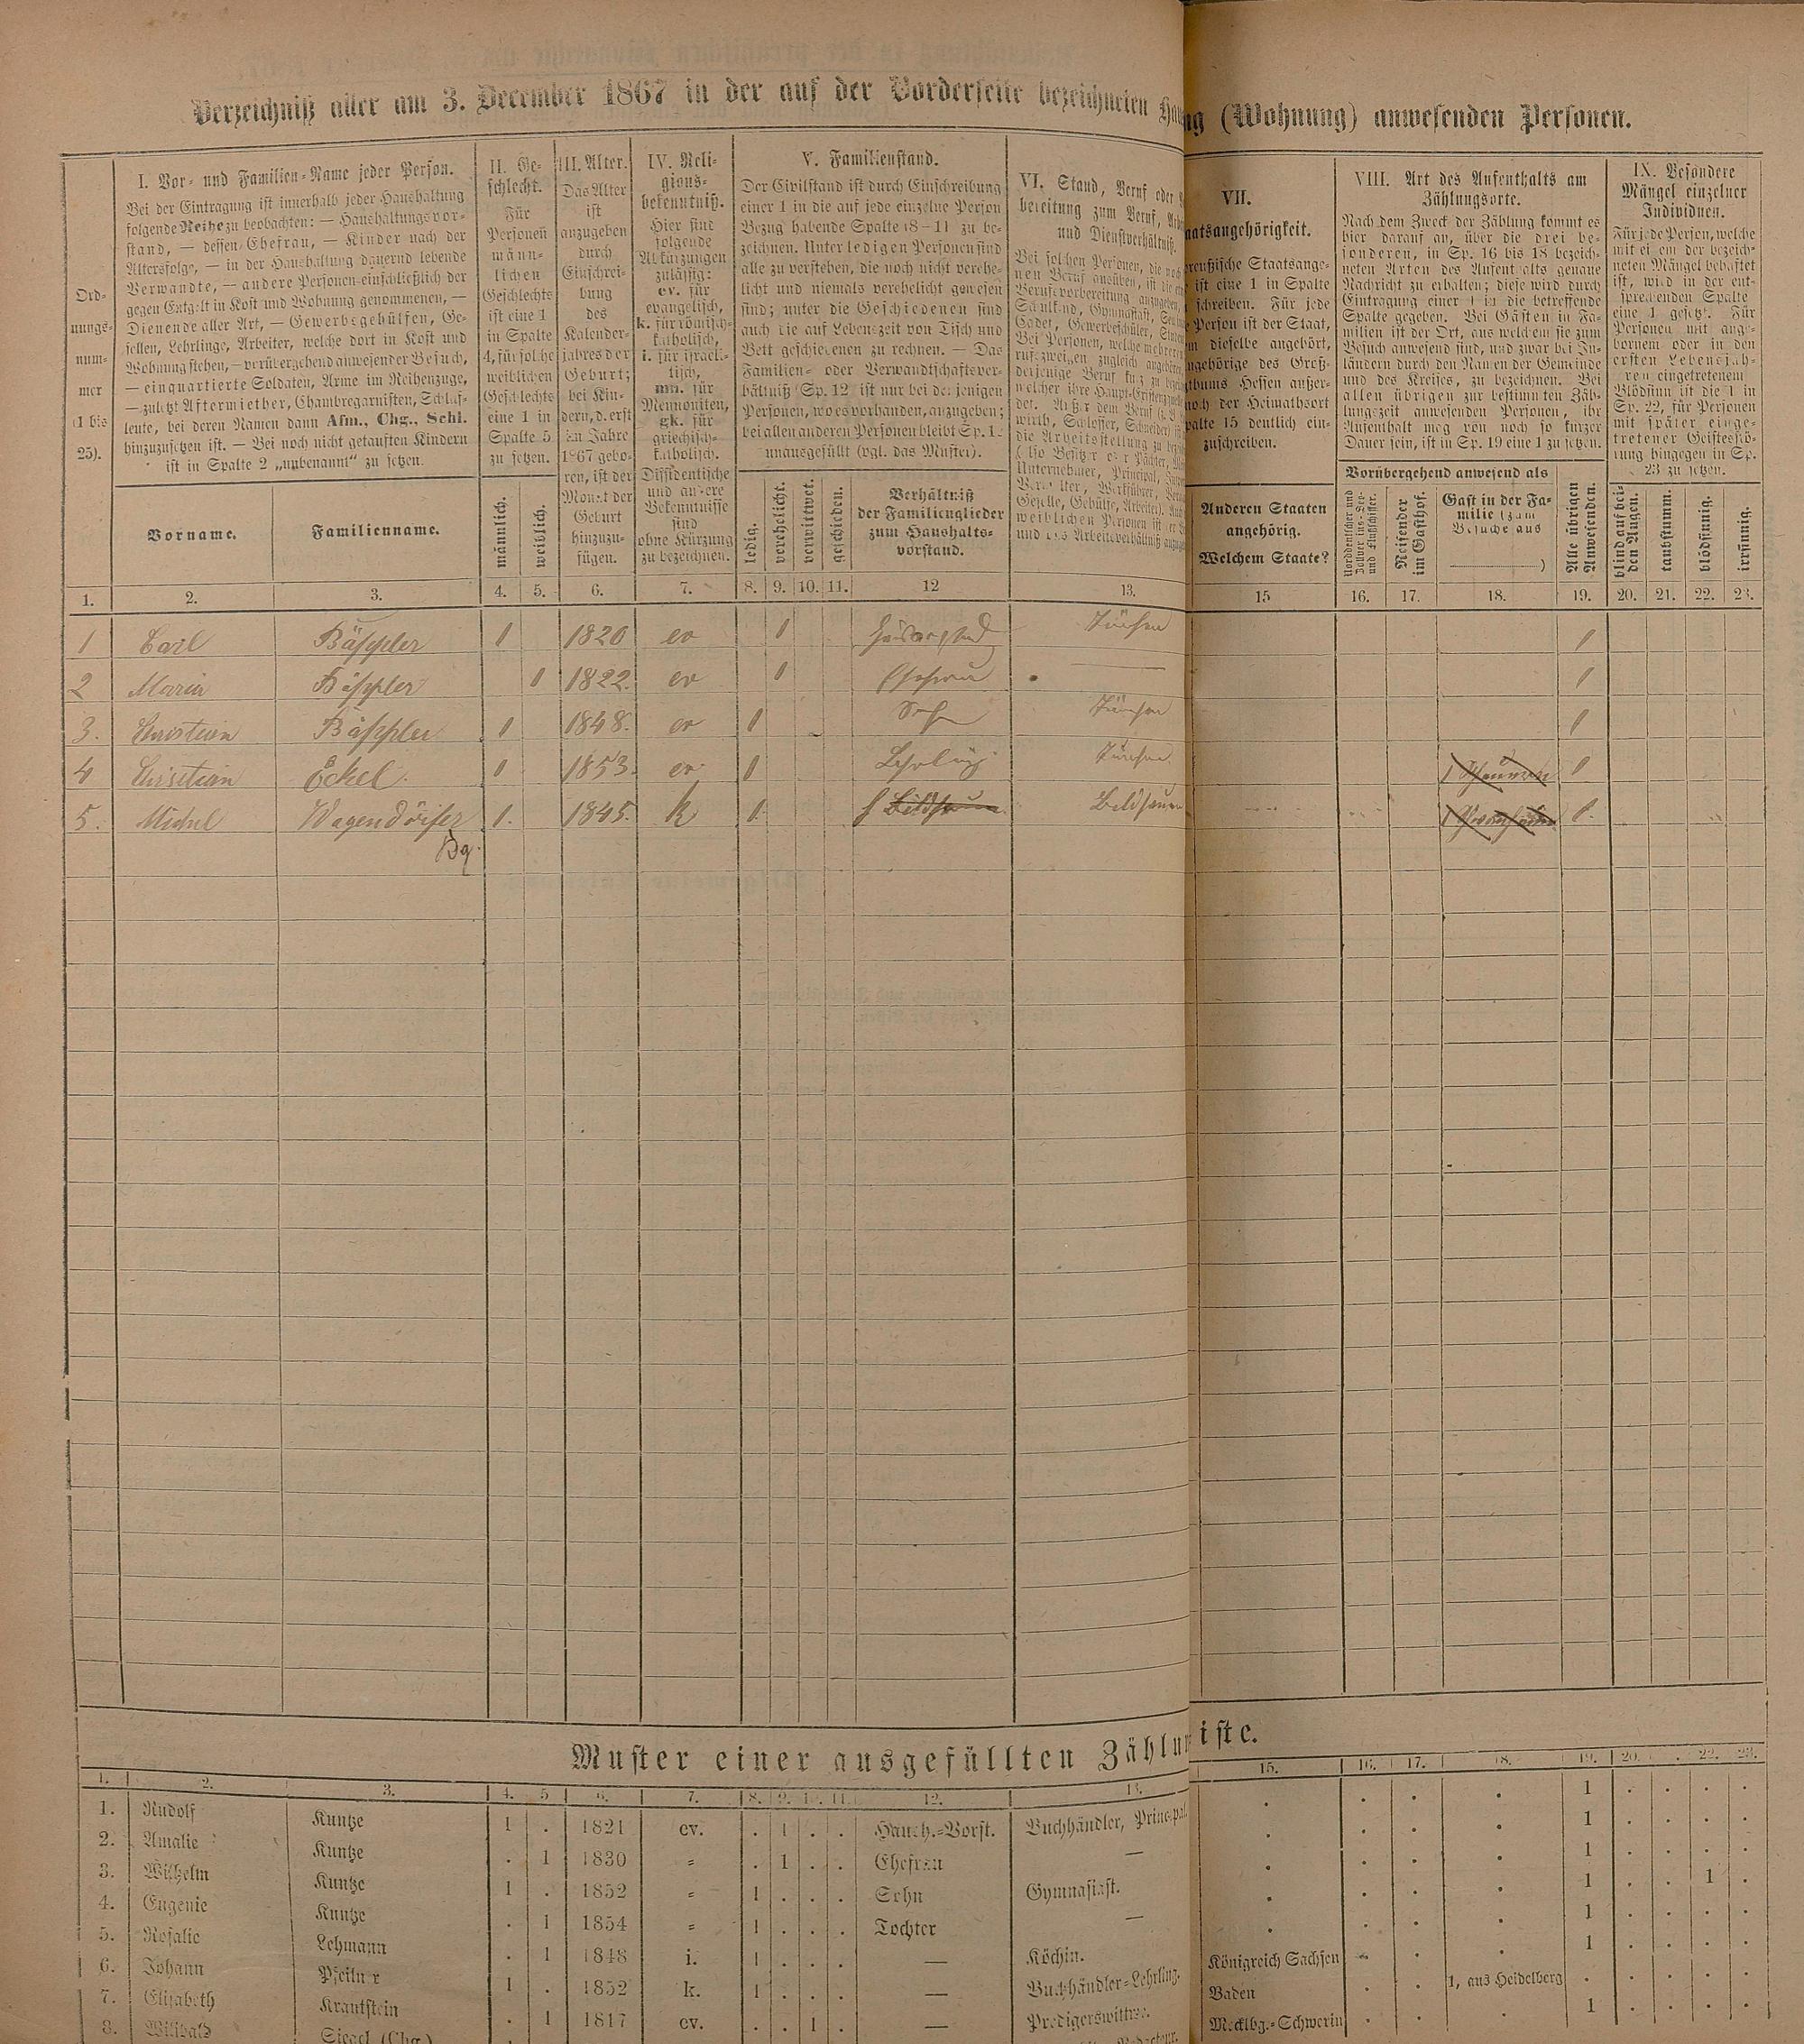 Verzeichniß aller am 3. December 1867 in der auf der Vorderseite bezeichneten Hau
ng (Wohnung) anwesenden Personen.
Ord-
nungs-
num-
mer
(1 bis
25).
I. Vor- und Familien-Name jeder Person.
Bei der Eintragung ist innerhalb jeder Haushaltung
folgende Reihe zu beobachten: — Haushaltungsvor-
stand, — dessen Ehefrau, — Kinder nach der
Altersfolge, — in der Haushaltung dauernd lebende
Verwandte, — andere Personen einschließlich der
gegen Entgelt in Kost und Wohnung genommenen, —
Dienende aller Art, — Gewerbsgehülfen, Ge-
sellen, Lehrlinge, Arbeiter, welche dort in Kost und
Wohnung stehen, — vorübergehend anwesender Besuch,
— einquartierte Soldaten, Arme im Reihenzuge,
— zuletzt Aftermiether, Chambregarnisten, Schlaf-
leute, bei deren Namen dann Afm., Chg., Schl.
hinzuzusetzen ist. — Bei noch nicht getauften Kindern
ist in Spalte 2 „unbenannt“ zu setzen.
Vorname.
Familienname.
II. Ge-
schlecht.
Für
Personen
männ-
lichen
Geschlechts
ist eine 1
in Spalte
4, für solche
weiblichen
Geschlechts
eine 1 in
Spalte 5
zu setzen.
männlich.
weiblich.
III. Alter.
Das Alter
ist
anzugeben
durch
Einschrei-
bung
des
Kalender-
jahres der
Geburt;
bei Kin-
dern, d. erst
im Jahre
1867 gebo-
ren, ist der
Monat der
Geburt
hinzuzu-
fügen.
IV. Reli-
gions-
bekenntniß.
Hier sind
folgende
Abkürzungen
zulässig:
ev. für
evangelisch,
k. für römisch-
katholisch,
i. für israeli-
tisch,
mn. für
Mennoniten,
gk. für
griechisch-
katholisch.
Dissidentische
und andere
Bekenntnisse
sind
ohne Kürzung
zu bezeichnen.
V. Familienstand.
Der Civilstand ist durch Einschreibung
einer 1 in die auf jede einzelne Person
Bezug habende Spalte (8–11) zu be-
zeichnen. Unter ledigen Personen sind
alle zu verstehen, die noch nicht verehe-
licht und niemals verehelicht gewesen
sind; unter die Geschiedenen sind
auch die auf Lebenszeit von Tisch und
Bett geschiedenen zu rechnen. — Das
Familien- oder Verwandtschaftsver-
hältniß (Sp. 12) ist nur bei denjenigen
Personen, wo es vorhanden, anzugeben;
bei allen anderen Personen bleibt Sp. 12
unausgefüllt (vgl. das Muster).
ledig.
verehelicht.
verwittwet.
geschieden.
Verhältniß
der Familienglieder
zum Haushalts-
vorstand.
VI. Stand, Beruf oder
bereitung zum Beruf,
und Dienstverhältniß.
VII.
aatsangehörigkeit.
reußische Staatsange-
ist eine 1 in Spalte
schreiben. Für jede
e Person ist der Staat,
m dieselbe angehört,
ngehörige des Groß-
thums Hessen außer-
noch der Heimathsort
palte 15 deutlich ein-
zuschreiben.
Anderen Staaten
angehörig.
Welchem Staate?
VIII. Art des Aufenthalts am
Zählungsorte.
Nach dem Zweck der Zählung kommt es
hier darauf an, über die drei be-
sonderen, in Sp. 16 bis 18 bezeich-
neten Arten des Aufenthalts genaue
Nachricht zu erhalten; diese wird durch
Eintragung einer 1 in die betreffende
Spalte gegeben. Bei Gästen in Fa-
milien ist der Ort, aus welchem sie zum
Besuch anwesend sind, und zwar bei In-
ländern durch den Namen der Gemeinde
und des Kreises, zu bezeichnen. Bei
allen übrigen zur bestimmten Zäh-
lungszeit anwesenden Personen, ihr
Aufenthalt mag von noch so kurzer
Dauer sein, ist in Sp. 19 eine 1 zu setzen.
Vorübergehend anwesend als
Norddeutscher und
Zollvereins-See-
und Flußschiffer.
Reisender
im Gasthof.
Gast in der Fa-
milie (zum
Besuche aus
)
Alle übrigen
Anwesenden.
IX. Besondere
Mängel einzelner
Individuen.
Für jede Person, welche
mit einem der bezeich-
neten Mängel behaftet
ist, wird in der ent-
sprechenden Spalte
eine 1 gesetzt. Für
Personen mit ange-
bornem oder in den
ersten Lebensjah-
ren eingetretenem
Blödsinn ist die 1 in
Sp. 22, für Personen
mit später einge-
tretener Geistesstö-
rung hingegen in Sp.
23 zu setzen.
blind auf bei-
den Augen.
taubstumm.
blödsinnig.
irrsinnig.
1. 2. 3. 4. 5. 6. 7. 8. 9. 10. 11. 12 13. 15 16. 17. 18. 19. 20. 21. 22. 23.
1 Carl Bäppler 1 1820 ev 1 1
2 Maria Bäppler 1 1822. ev 1 Ehefrau — 1
3. Christian Bäppler 1 1848. ev 1 Sohn 1
4 Christian Eckel. 1 1853. ev. 1 Lehrling 1
5. Michel Wagendörfer 1. 1845. k 1. Bildhauer 1.
Muster einer ausgefüllten Zählun
iste.
1. 2. 3. 4. 5 6. 7. 8. 9. 10. 11. 12. 13. 15. 16. 17. 18. 19. 20. . 22. 23.
1. Rudolf Kuntze 1 . 1821 ev. . 1 . . Haush.-Vorst. Buchhändler, Principal. . . . . 1 . . . .
2. Amalie Kuntze . 1 1830 = . 1 . . Ehefrau — . . . . 1 . . . .
3. Wilhelm Kuntze 1 . 1852 = 1 . . . Sohn Gymnasiast. . . . . 1 . . . .
4. Eugenie Kuntze . 1 1854 = 1 . . . Tochter — . . . . 1 . . 1 .
5. Rosalie Lehmann . 1 1848 i. 1 . . . — Köchin. . . . . 1 . . . .
6. Johann Pfeiler 1 . 1852 k. 1 . . . — Buchhändler-Lehrling. Königreich Sachsen . . . 1 . . . .
7. Elisabeth Krautstein . 1 1817 ev. . . 1 . — Predigerswittwe. Baden . . 1, aus Heidelberg . . . . .
8. Wilibald Siegel (Chg.) Mecklbg.-Schwerin . . . 1 . . . .